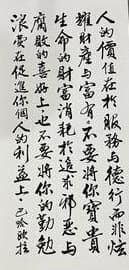 人的價值在於服務與德行而非炫
耀財產與富有不要將你寶貴
生命的財富消耗於追求邪惡與
腐敗的喜好上也不要將你的勤勉
浪費在促進你個人的利益上